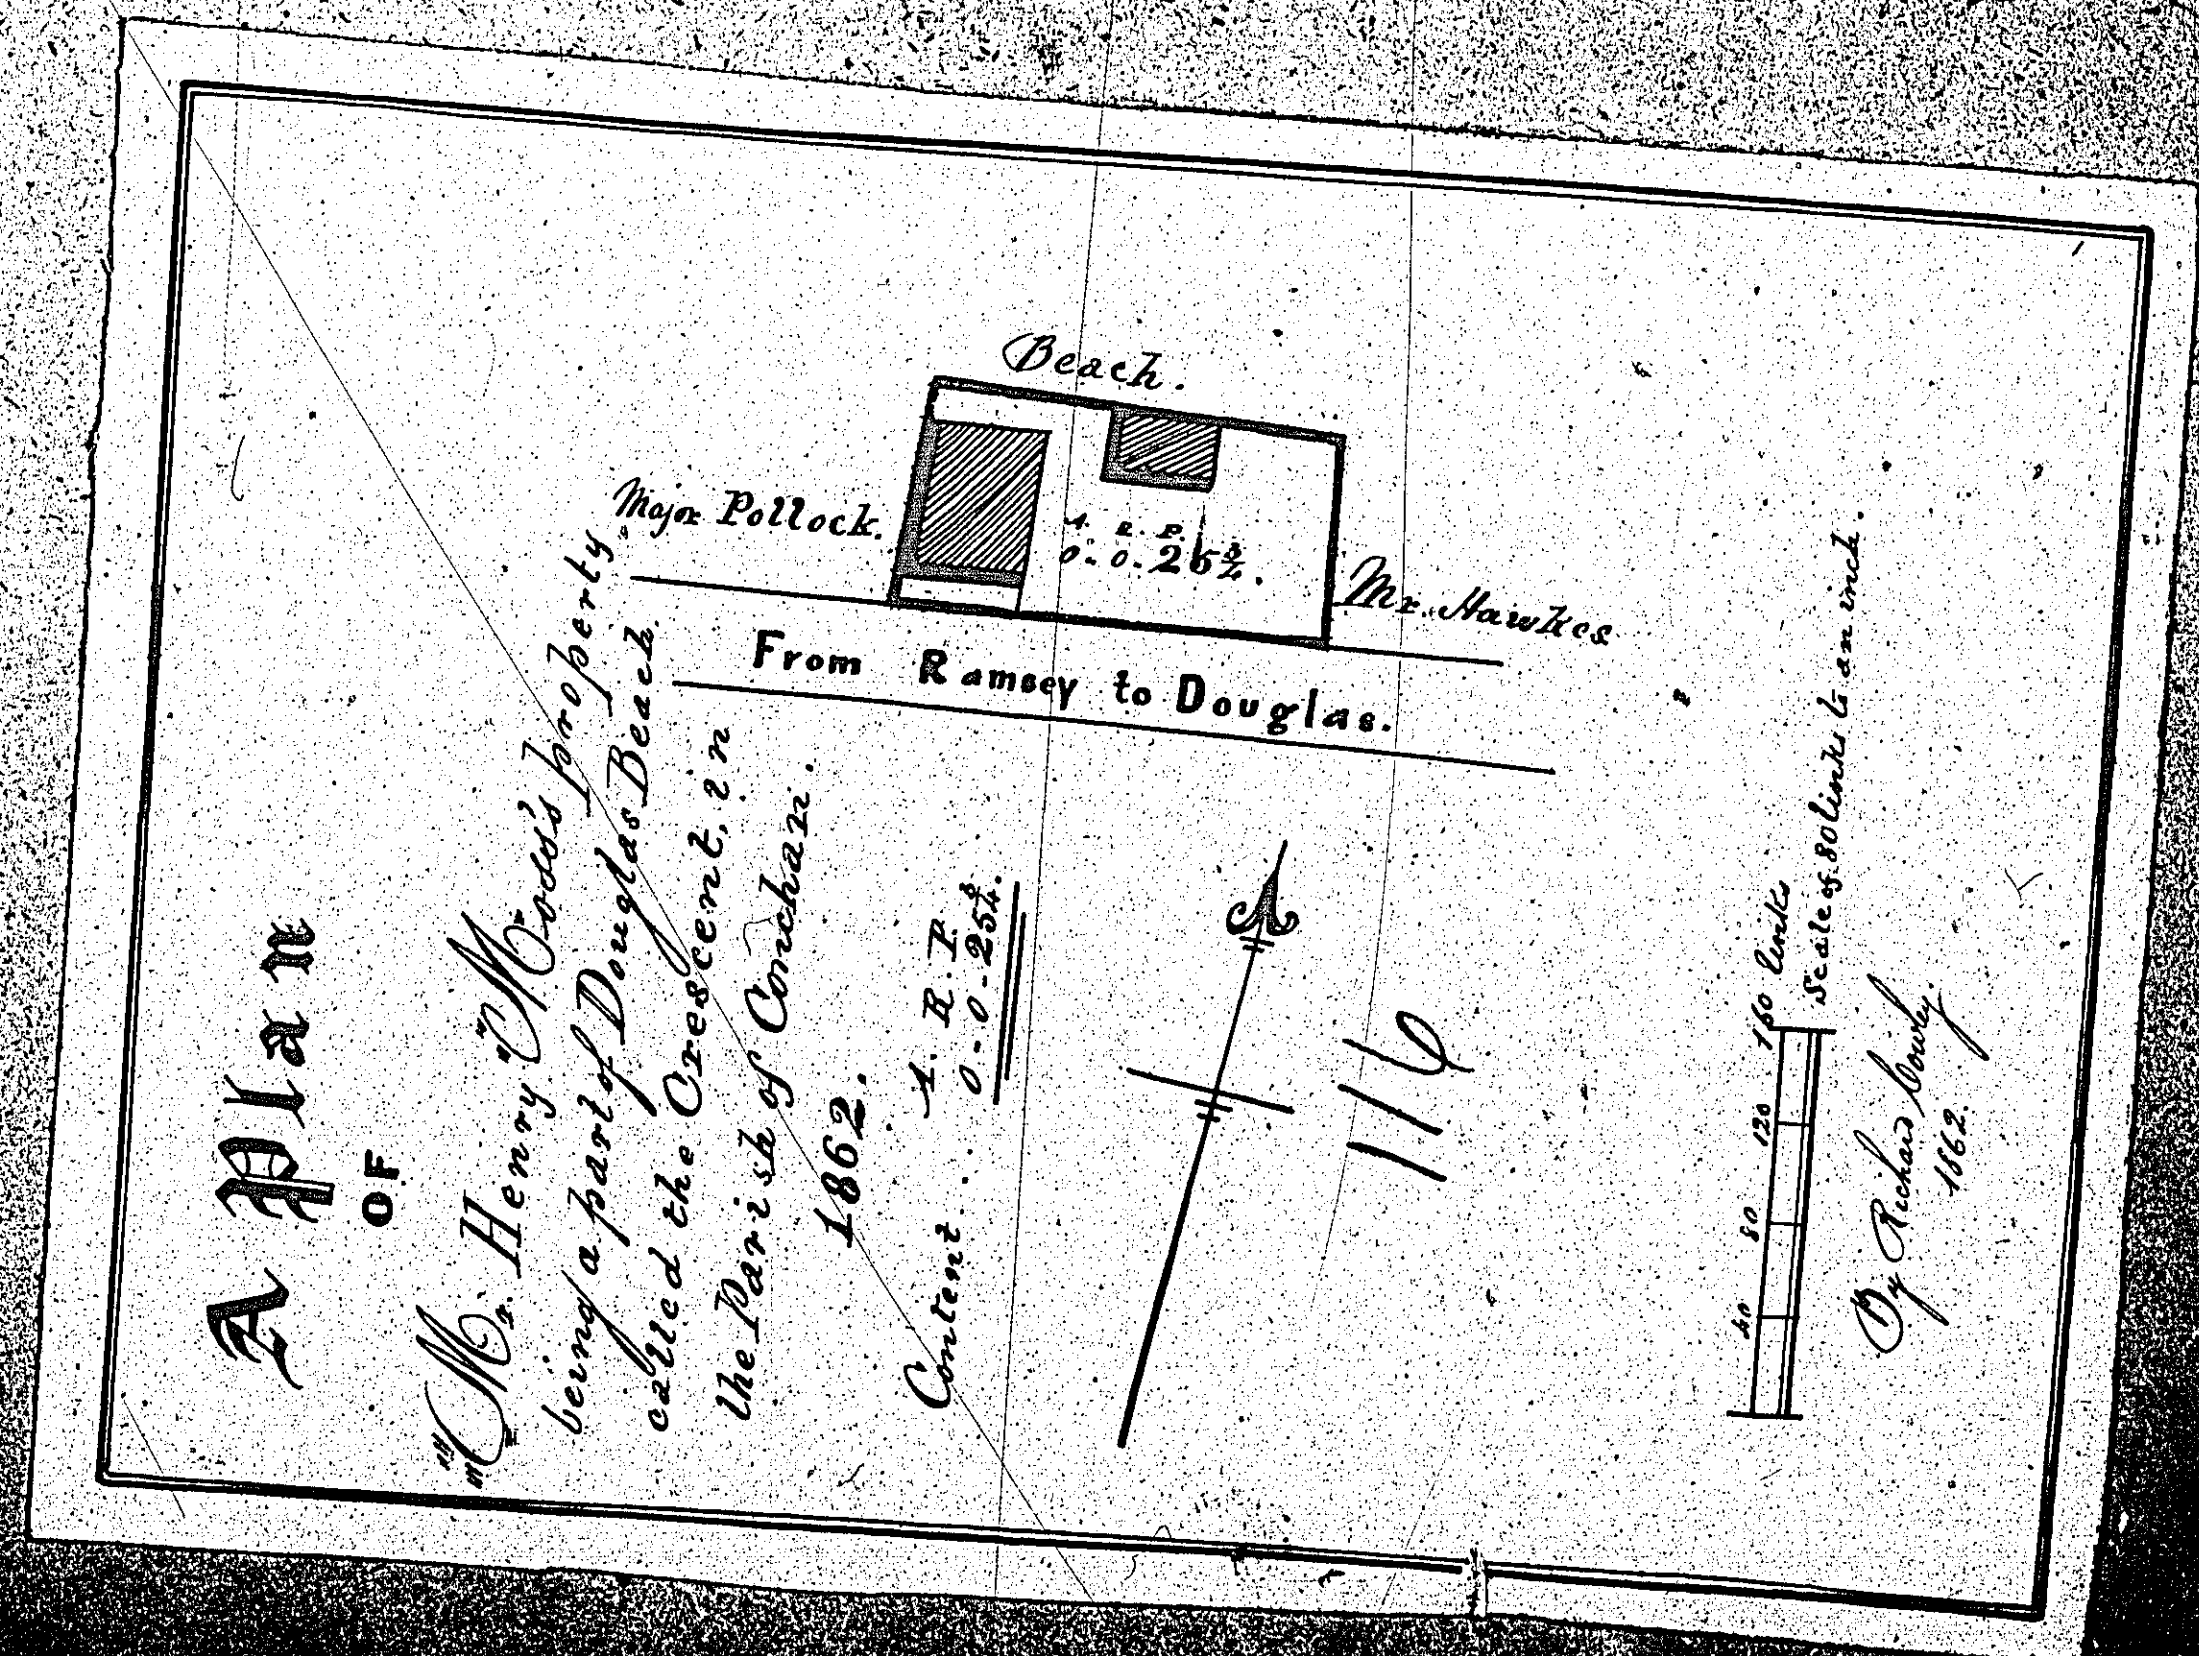 A Plan
OF
Mr. Henry Moss's property
being a part of Douglas Beach
called the Crescent, in
the Parish of Conchan.
1862.
A. R. P.
Content . . 0 - 0 - 25¾.
Beach.
Major Pollock.
A. R. P.
0. 0. 25¾.
Mr. Hawkes
From Ramsey to Douglas.
116
40 80 120 160 links
Scale of 80 links to an inch.
By Richard Cowley.
1862.